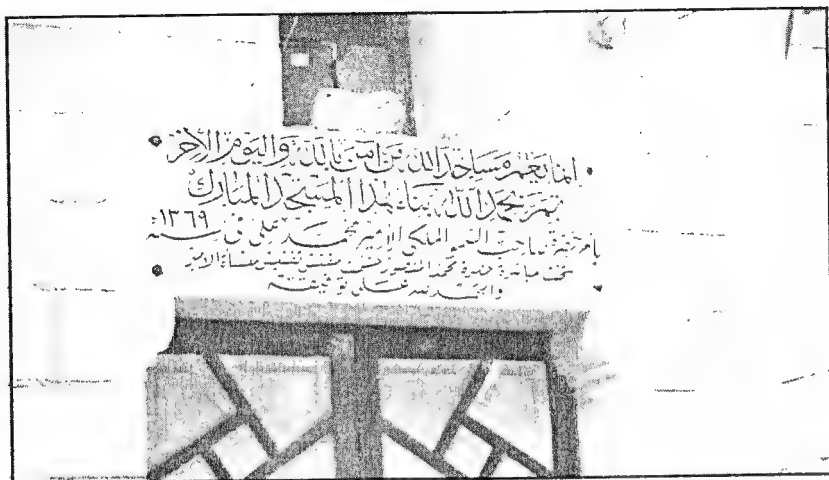 انما يعمر مساجد الله من آمن بالله واليوم الآخر
تم بحمد الله بناء هذا المسجد المبارك
بأمر حضرة صاحب السمو الملكي الأمير محمد علي في سنة ١٣٦٩
تحت مباشرة حضرة محمد مفتش تفتيش الأمير
والحمد لله على توفيقه